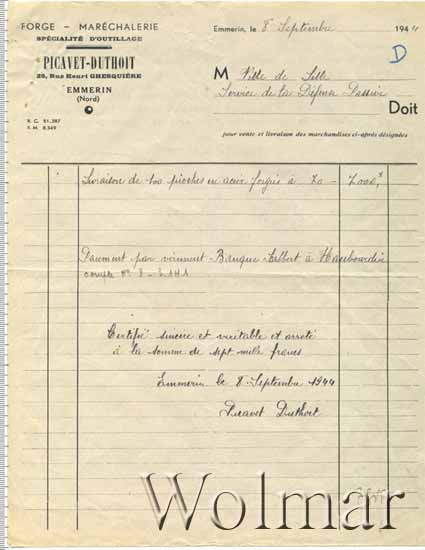 FORGE – MARÉCHALERIE
SPÉCIALITÉ D'OUTILLAGE
PICAVET-DUTHOIT
28, Rue Henri GHESQUIÈRE
EMMERIN
(Nord)
R. C. 51.387
T. M. 8.349
Emmerin, le 8 Septembre 1944
D
M Ville de Lille
Service de la Défense Passive
Doit
pour vente et livraison des marchandises ci-après désignées
Livraison de 100 pioches en acier forgés à 70 – 7.000,
Paiement par virement Banque Scalbert à Haubourdin
compte N°
Certifié sincère et véritable et arrêté
à la somme de sept mille francs
Emmerin le 8 Septembre 1944
Picavet Duthoit
Wolmar